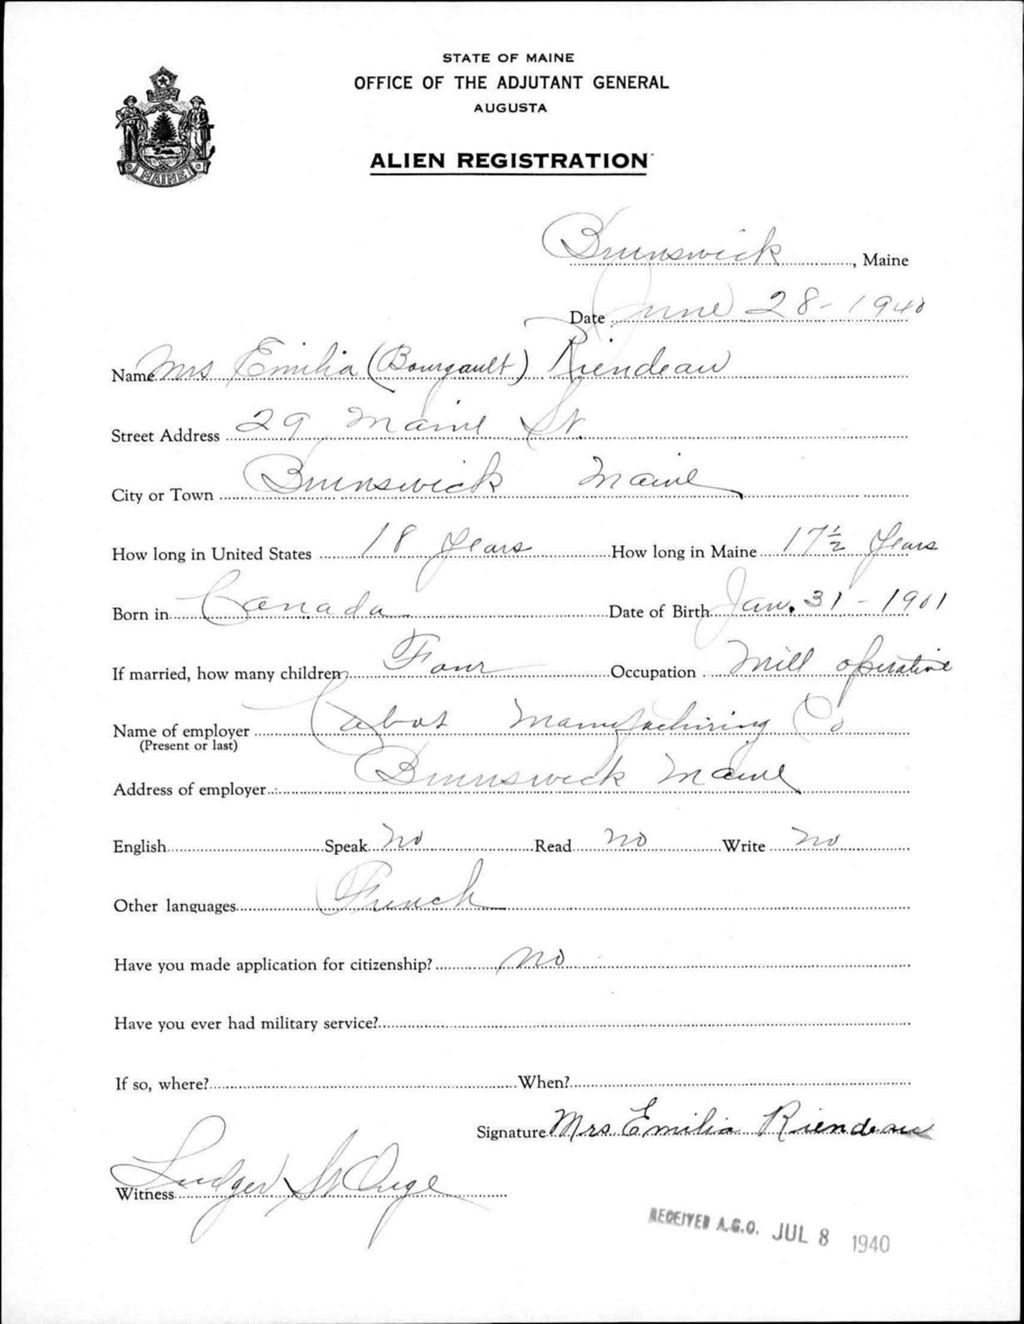 STATE OF MAINE
OFFICE OF THE ADJUTANT GENERAL
AUGUSTA
MAINE
ALIEN REGISTRATION
Brunswick, Maine
Date June 28-1940
Name Mrs Emilia (Bourgault) Riendeau
Street Address 29 Maine St.
City or Town Brunswick Maine
How long in United States 18 Years How long in Maine 17½ Years
Born in Canada Date of Birth Jan. 31-1901
If married, how many children Four Occupation Mill operative
Name of employer Cabot Manufacturing Co
(Present or last)
Address of employer Brunswick Maine
English Speak No Read No Write No
Other languages French
Have you made application for citizenship? No
Have you ever had military service?
If so, where? When?
Signature Mrs. Emilia Riendeau
Witness Ludger St Onge
RECEIVED A.G.O. JUL 8 1940